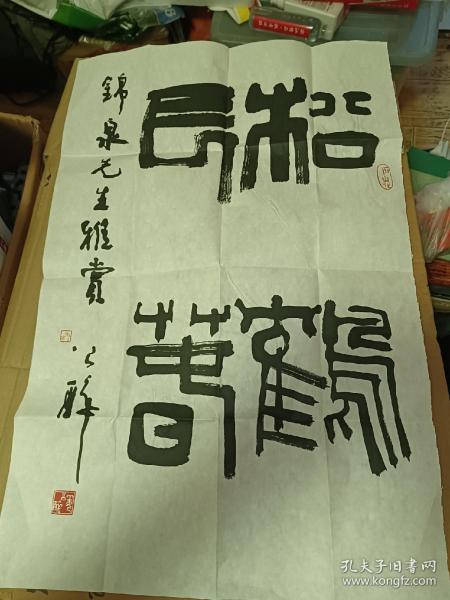 松鶴
長春
錦泉先生雅賞
孔夫子旧书网
www.kongfz.com